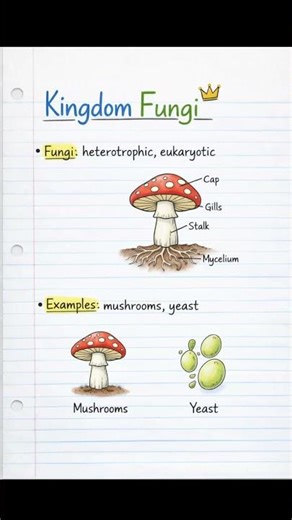 Kingdom Fungi
• Fungi: heterotrophic, eukaryotic
Cap
Gills
Stalk
Mycelium
• Examples: mushrooms, yeast
Mushrooms
Yeast